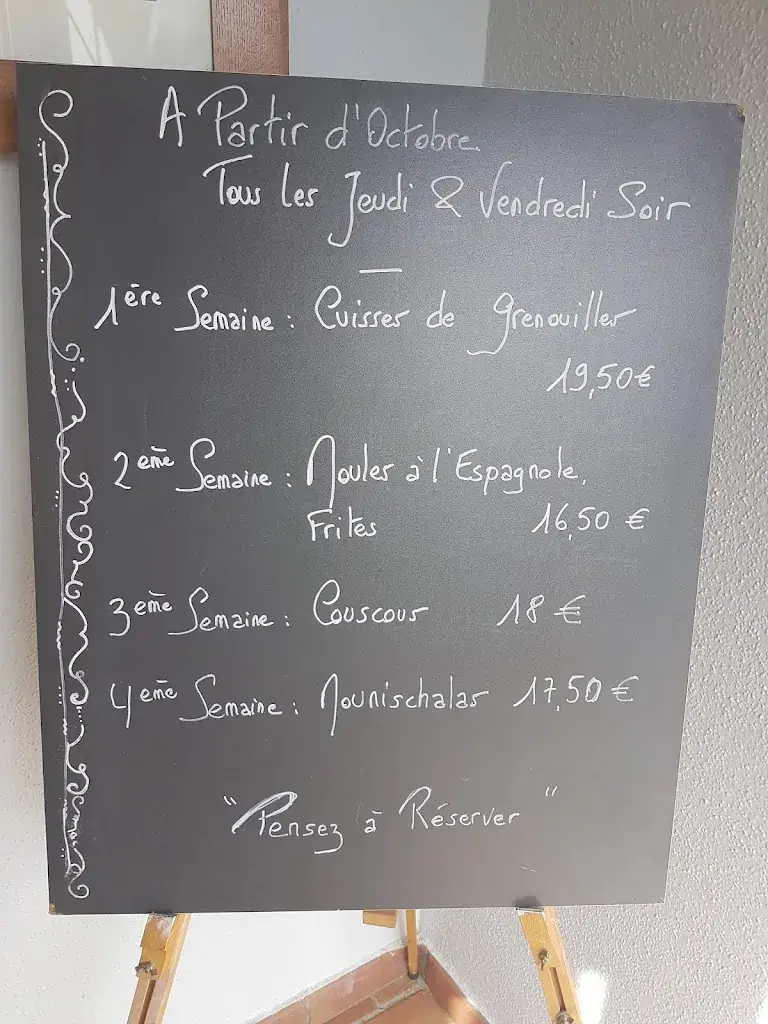 A Partir d'Octobre.
Tous les Jeudi & Vendredi Soir
1ère Semaine : Cuisses de grenouilles
19,50€
2ème Semaine : Moules à l'Espagnole,
Frites 16,50 €
3ème Semaine : Couscous 18 €
4ème Semaine : Mounischalas 17,50 €
"Pensez à Réserver"